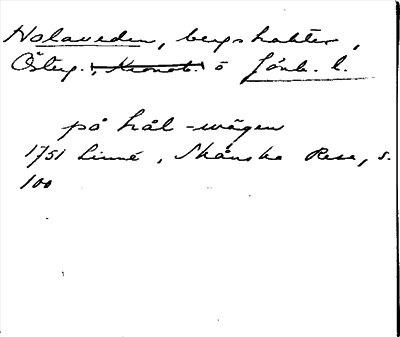 Holaveden, bergstrakter,
Österg., Kronob. o Jönk. l.
på hål-wägen
1751 Linné, Skånska Resa, s.
100